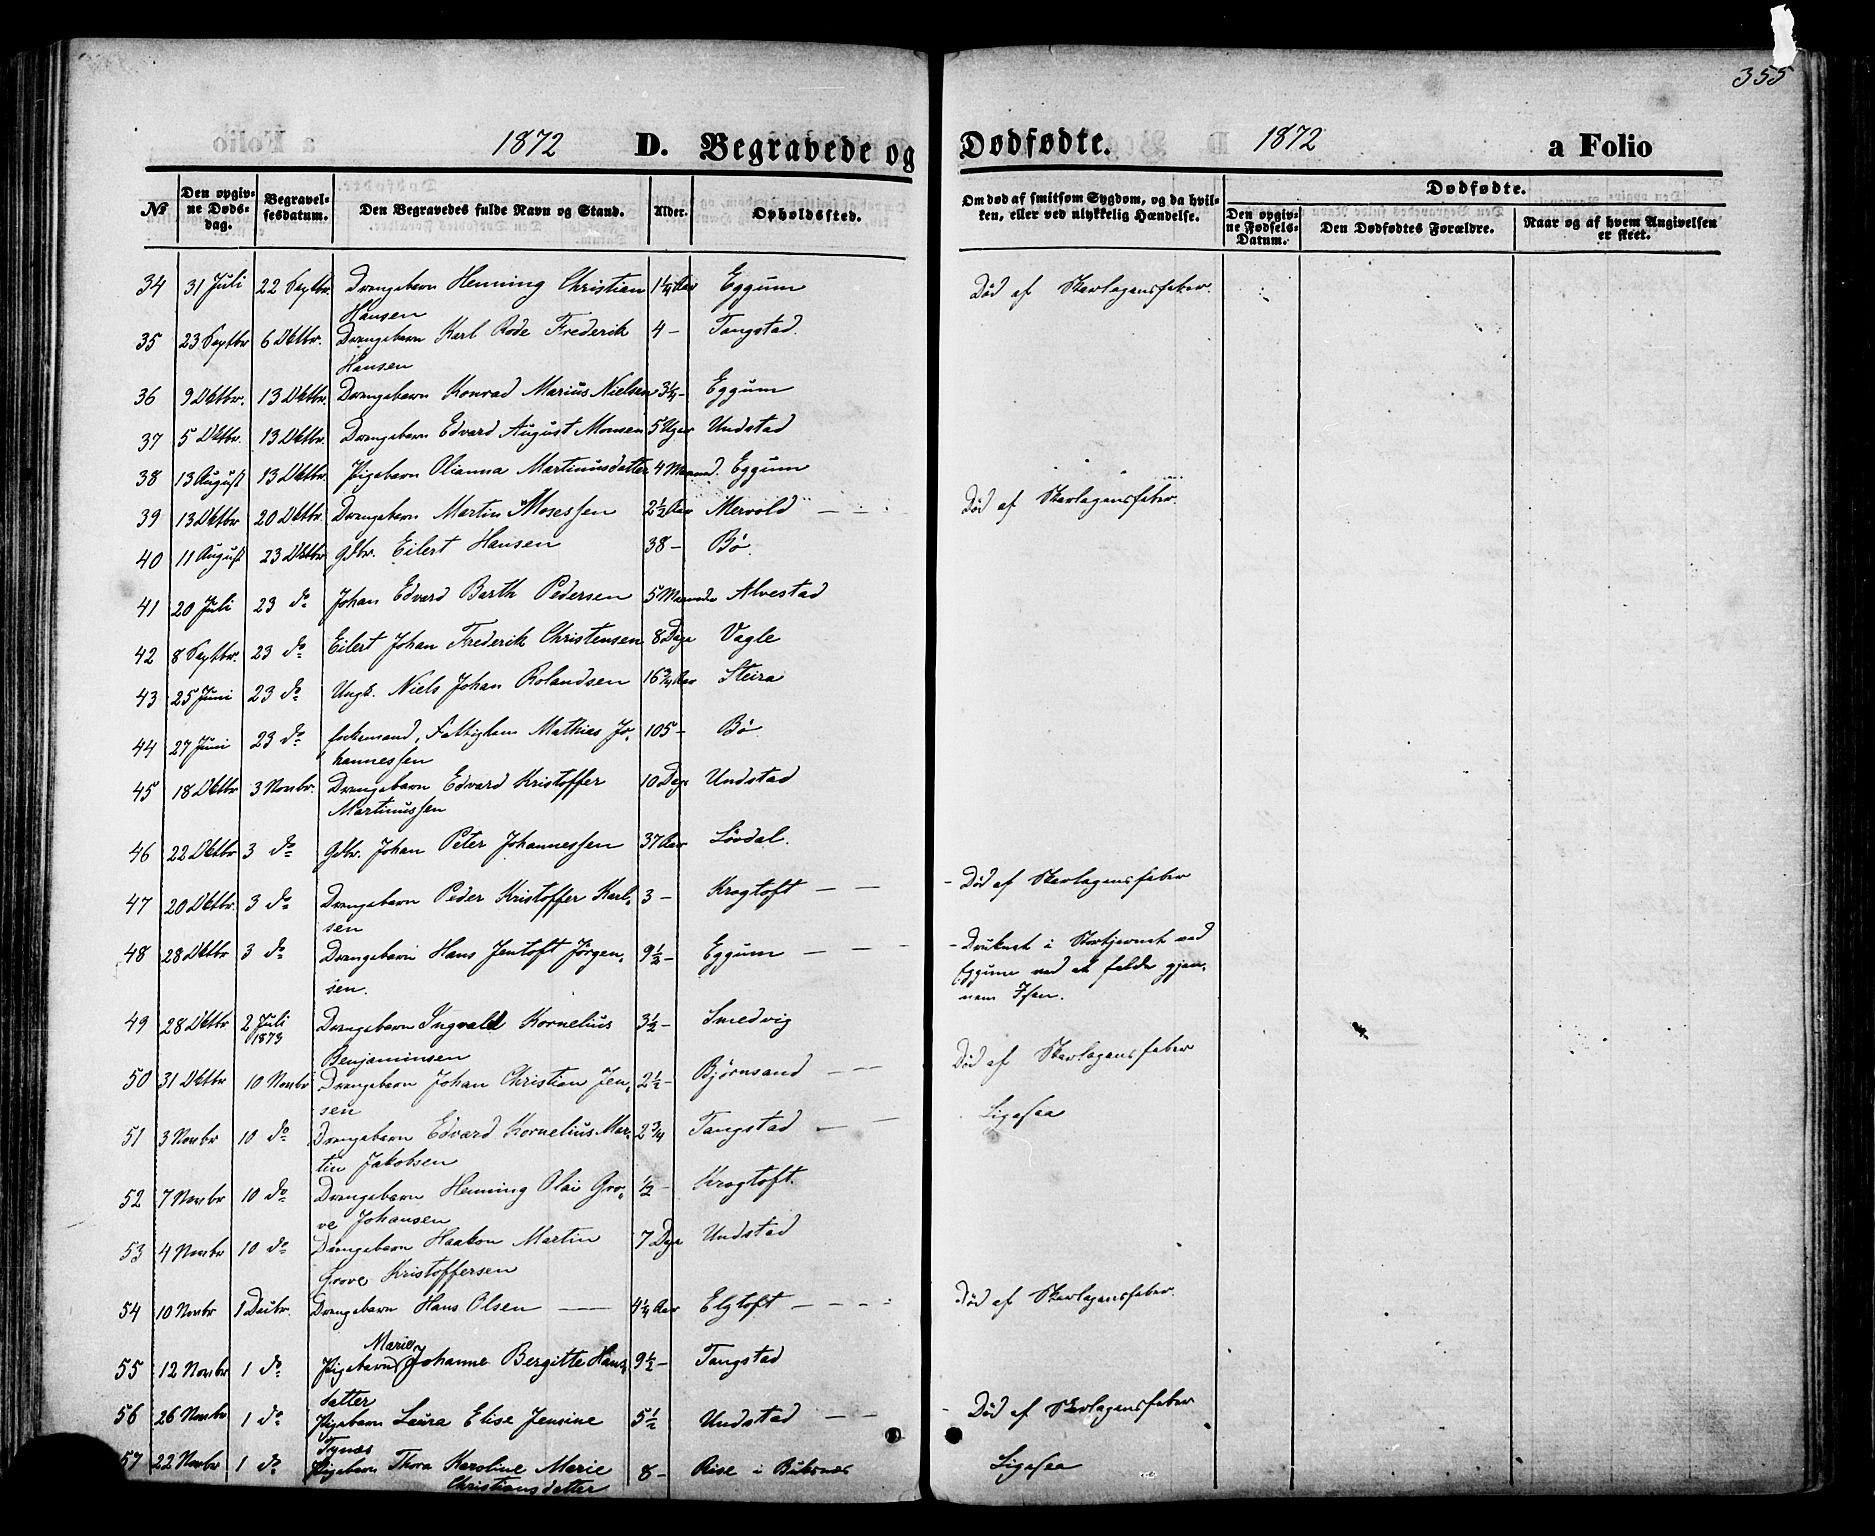 355
1872 D. Begravede og Dødfødte. 1872 a Folio
№ Den opgivne Dødsdag. Begravelsesdatum. Den Begravedes fulde Navn og Stand. Alder. Opholdssted. Om død af smitsom Sygdom, og da hvilken, eller ved ulykkelig Hændelse. Dødfødte.
Den opgivne Fødsels-Datum. Den Dødfødtes Forældre. Naar og af hvem Angivelsen er skeet.
34 31 Juli 22 Septbr. Drengebarn Henning Christian 1¼ Aar Eggum Død af Skarlagensfeber.
Hansen
35 23 Septbr 6 Oktbr. Drengebarn Karl Rode Frederik 4 - Tangstad.
Hansen
36 9 Oktbr. 13 Oktbr. Drengebarn Konrad Marius Nielsen 3¼ - Eggum
37 5 Oktbr. 13 Oktbr. Drengebarn Edvard August Monsen 5 Uger Undstad
38 13 August 13 Oktbr. Pigebarn Olianna Martinusdatter 4 Maaned. Eggum
39 13 Oktbr 20 Oktbr. Drengebarn Martin Mosessen 2½ Aar Mervold — — Død af Skarlagensfeber.
40 11 August 23 Oktbr. Gdbr. Eilert Hansen 38 - Bø
41 20 Juli 23 do Johan Edvard Barth Pedersen 5 Maaneder Alvestad
42 8 Septbr. 23 do Eilert Johan Frederik Christensen 8 Dage Vagle
43 25 Juni 23 do Ungk. Niels Johan Rolandsen 16¾ Aar Steira
44 27 Juni 23 do Enkemand, Fattiglem Mathias Jo- 105 - Bø
hannessen
45 18 Oktbr 3 Novbr. Drengebarn Edvard Kristoffer 10 Dage Undstad
Martinussen
46 22 Oktbr 3 do Gdbr. Johan Peter Johannessen 37 Aar Løvdal.
47 20 Oktbr. 3 do Drengebarn Peder Kristoffer Karl- 3 - Krogtoft — — - Død af Skarlagensfeber
sen
48 28 Oktbr 3 do Drengebarn Hans Jentoft Jørgen- 9½ - Eggum — — - - Druknet i Stortjernet ved
sen. Eggum ved at falde gjen-
nem Isen.
49 28 Oktbr 2 Juli 1873 Drengebarn Ingvald Kornelius 3½ - Smedvig
Benjaminsen
50 31 Oktbr 10 Novbr Drengebarn Johan Christian Jen- 2½ - Bjørnsand — — Død af Skarlagensfeber
sen
51 3 Novbr 10 do Drengebarn Edvard Kornelius Mar- 2¾ Tangstad — — Ligesaa
tin Jakobsen
52 7 Novbr 10 do Drengebarn Henning Olai Gro- ½ - Krogtoft.
ve Johansen
53 4 Novbr 10 do Drengebarn Haakon Martin 7 Dage Undstad
Grove Kristoffersen
54 10 Novbr 1 Decbr. Drengebarn Hans Olsen — 4¼ Aar Elgtoft — - - Død af Skarlagensfeber.
Marie
55 12 Novbr 1 do Pigebarn Johanne Bergitte Hans- 9½ - Tangstad
datter
56 26 Novbr 1 do Pigebarn Laura Elise Jensine 5½ Undstad — — - Død af Skarlagensfeber
Tynæs
57 22 Novbr 1 do Pigebarn Thora Karoline Marie 8 - Rise i Buksnæs Ligesaa
Christiansdatter